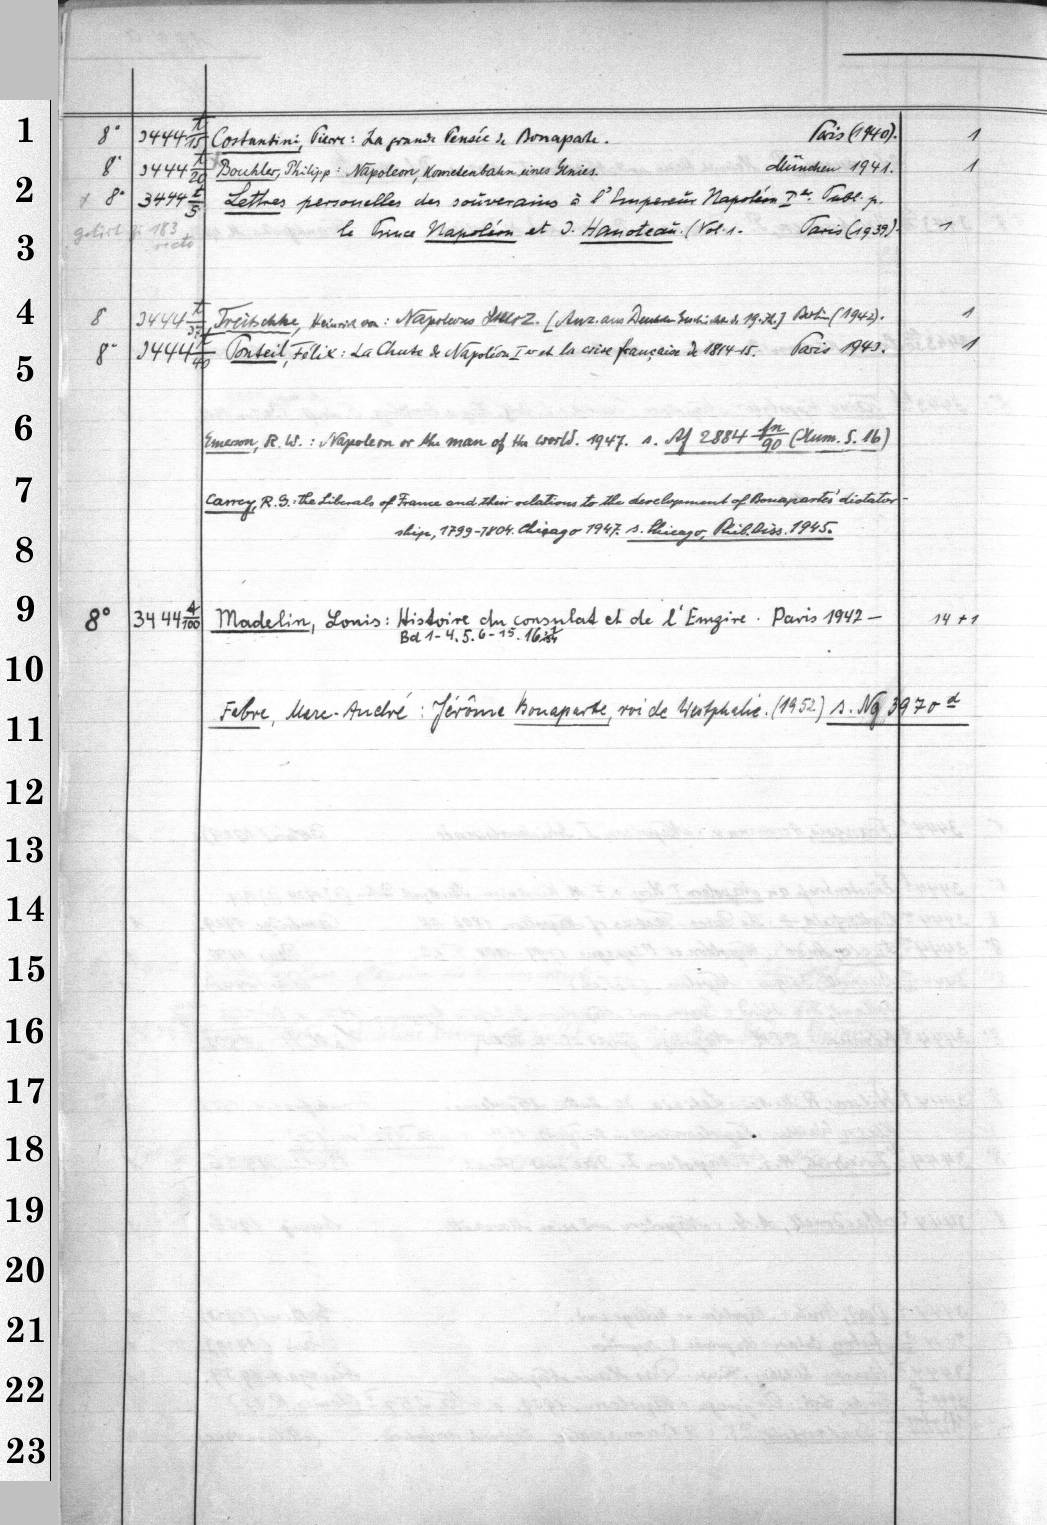 1 8° 3444 t/15 Costantini, Pierre: La grande Pensée de Bonaparte. Paris (1940). 1
8° 3444 t/20 Bouhler, Philipp: Napoleon, Kometenbahn eines Genies. München 1941. 1
2 8° 3444 t/5 Lettres personelles des souverains à l'Empereur Napoléon Ier. Publ. p.
3 gehört recto le Prince Napoléon et J. Hanoteau. (Vol. 1. Paris (1939). 1
4 8 3444 t/37 Treitschke, Heinrich von: Napoleons [Ausz. aus Deutsche Geschichte d. 19. Jh.] Berlin (1942). 1
5 8° 3444 t/40 Ponteil, Félix: La Chute de Napoléon Ier et la crise française de 1814-15. Paris 1943. 1
6 Emerson, R. W.: Napoleon or the man of the world. 1947. s. Af 2884 fn/90 (Num. 5. 16)
7 Carrey, R. G.: the Liberals of France and their relations to the development of Bonapartes' dictator-
8 ship, 1799-1804. Chicago 1947. s. Chicago, Phil. Diss. 1945.
9 8° 3444 t/100 Madelin, Louis: Histoire du consulat et de l'Empire. Paris 1942— 14 + 1
Bd 1-4. 5. 6-15. 16
10
11 Fabre, Marc-André: Jérôme Bonaparte, roi de Westphalie. (1952) s. Ng 3970 d
12
13
14
15
16
17
18
19
20
21
22
23